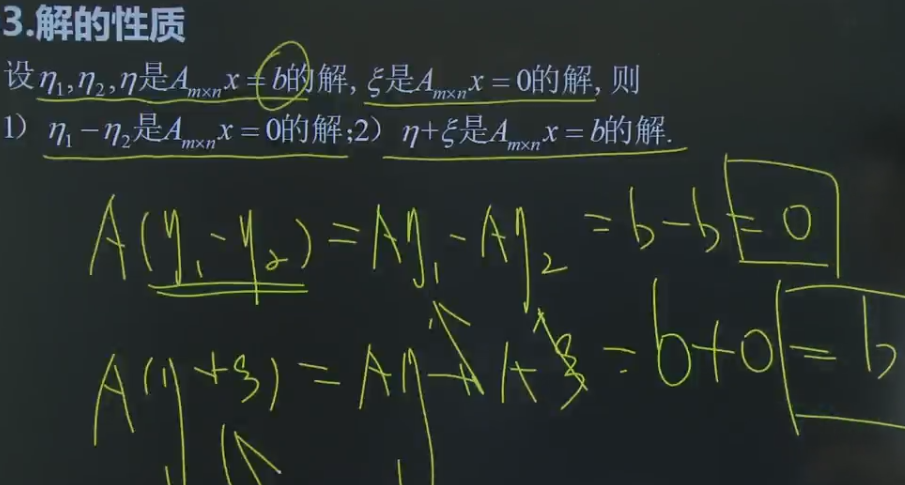 3.解的性质
设η₁,η₂,η是Aₘ×ₙx=b的解,ξ是Aₘ×ₙx=0的解,则
1) η₁-η₂是Aₘ×ₙx=0的解;2) η+ξ是Aₘ×ₙx=b的解.
A(η₁-η₂)=Aη₁-Aη₂=b-b=0
A(η+ξ)=Aη+Aξ=b+0=b